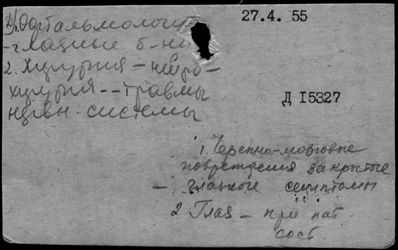 1. Офтальмология
27.4. 55
- глазные б-ни
2. Хирургия - нейро-
хирургия -- травмы
нервн. системы
Д I5327
1. Черепно-мозговые
повреждения закрытые
- глазные симптомы
2. Глаз - при пат.
сост.